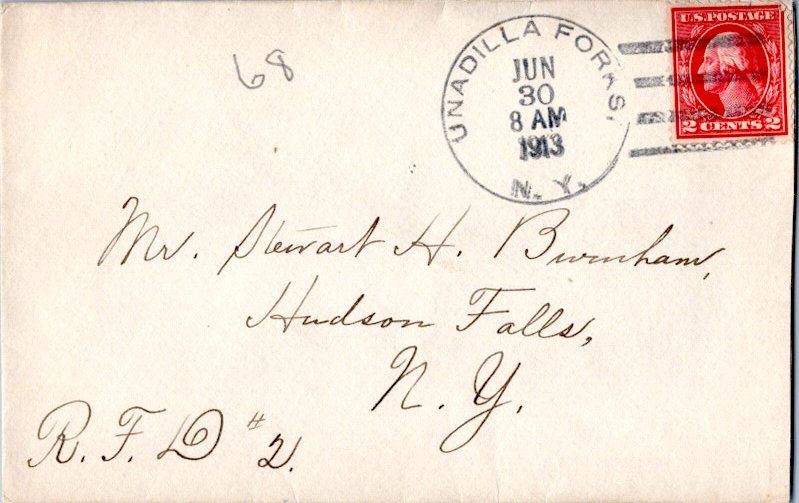 68
UNADILLA FORKS,
JUN
30
8 AM
1913
N. Y.
U.S. POSTAGE
2 CENTS 2
Mr. Stewart H. Burnham,
Hudson Falls,
N. Y.
R. F. D # 2.